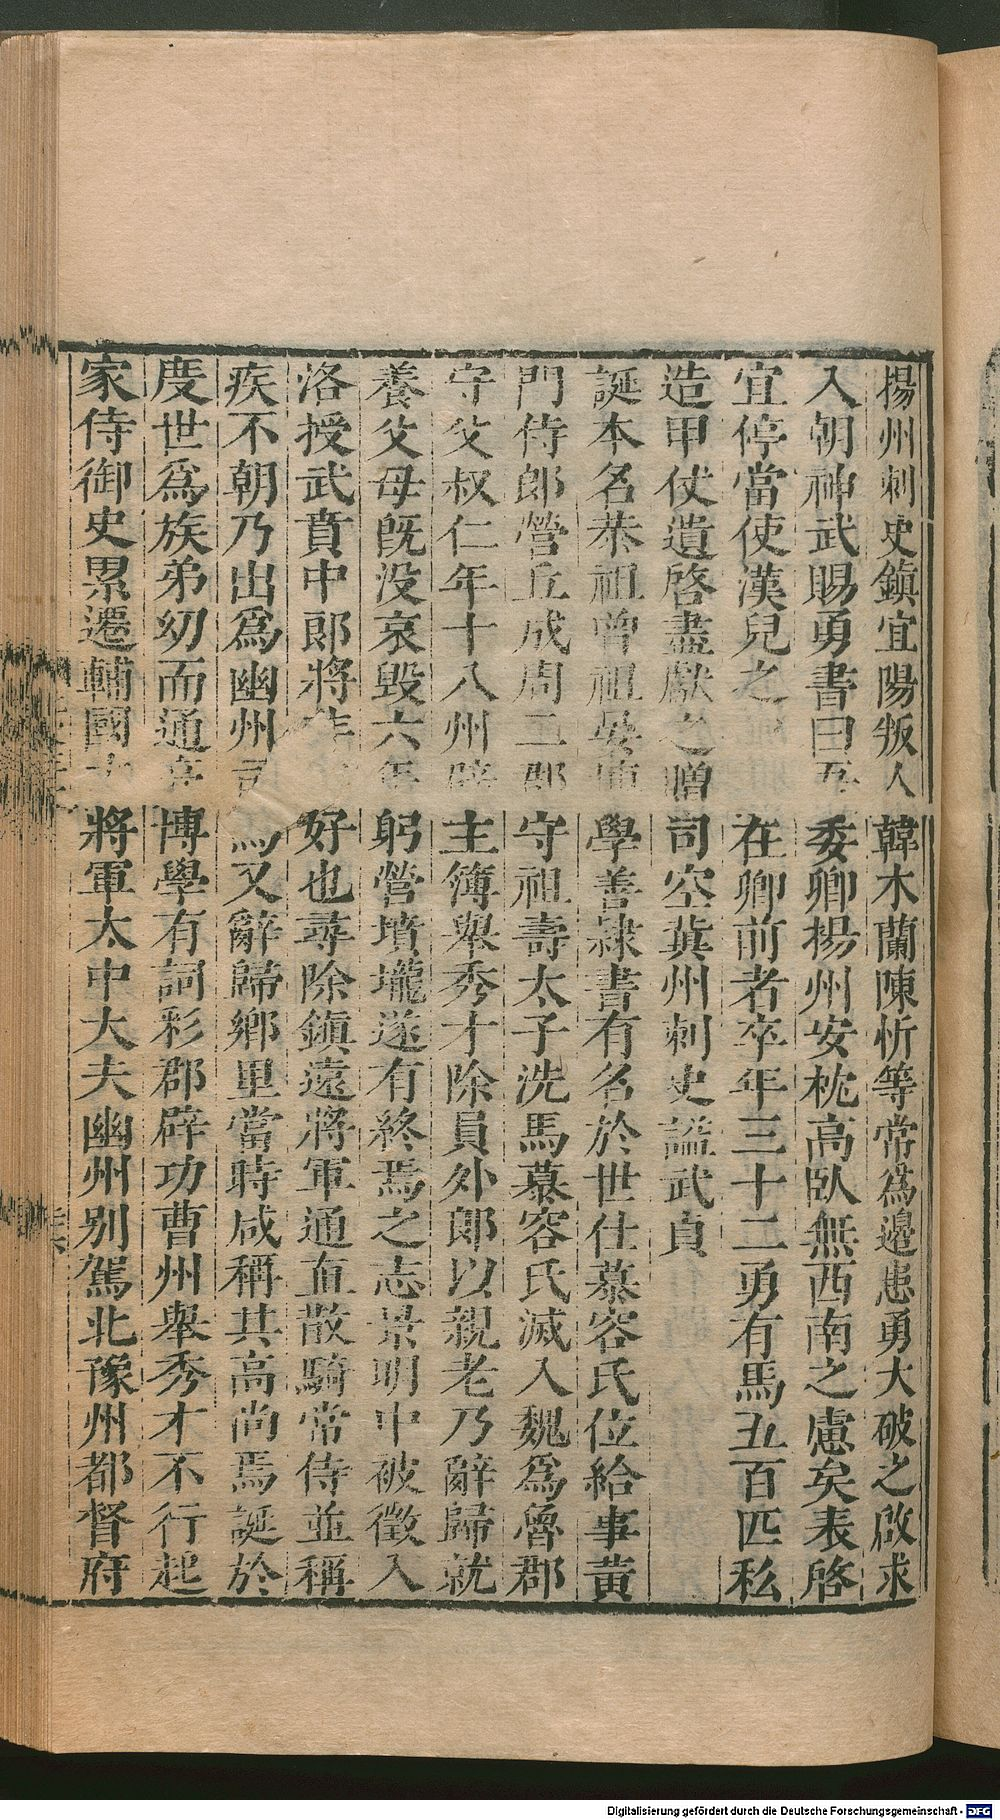 揚州刺史鎮宜陽叛人韓木蘭陳忻等常為邊患勇大破之啟求
入朝神武賜勇書曰吾委卿揚州安枕高臥無西南之慮矣表啓
宜停當使漢兒之在卿前者卒年三十二勇有馬五百匹私
造甲仗遺啓盡獻之贈司空冀州刺史謚武貞
誕本名恭祖曾祖晏學善隸書有名於世仕慕容氏位給事黃
門侍郎營丘成周二郡守祖壽太子洗馬慕容氏滅入魏為魯郡
守父叔仁年十八州辟主簿舉秀才除員外郎以親老乃辭歸就
養父母既没哀毀六年躬營墳壠遂有終焉之志景明中被徵入
洛授武賁中郎將好也尋除鎮遠將軍通直散騎常侍並稱
疾不朝乃出爲幽州司馬又辭歸鄉里當時咸稱其高尚焉誕於
度世爲族弟幼而通亮博學有詞彩郡辟功曹州舉秀才不行起
家侍御史累遷輔國大將軍太中大夫幽州别駕北豫州都督府
Digitalisierung gefördert durch die Deutsche Forschungsgemeinschaft - DFG